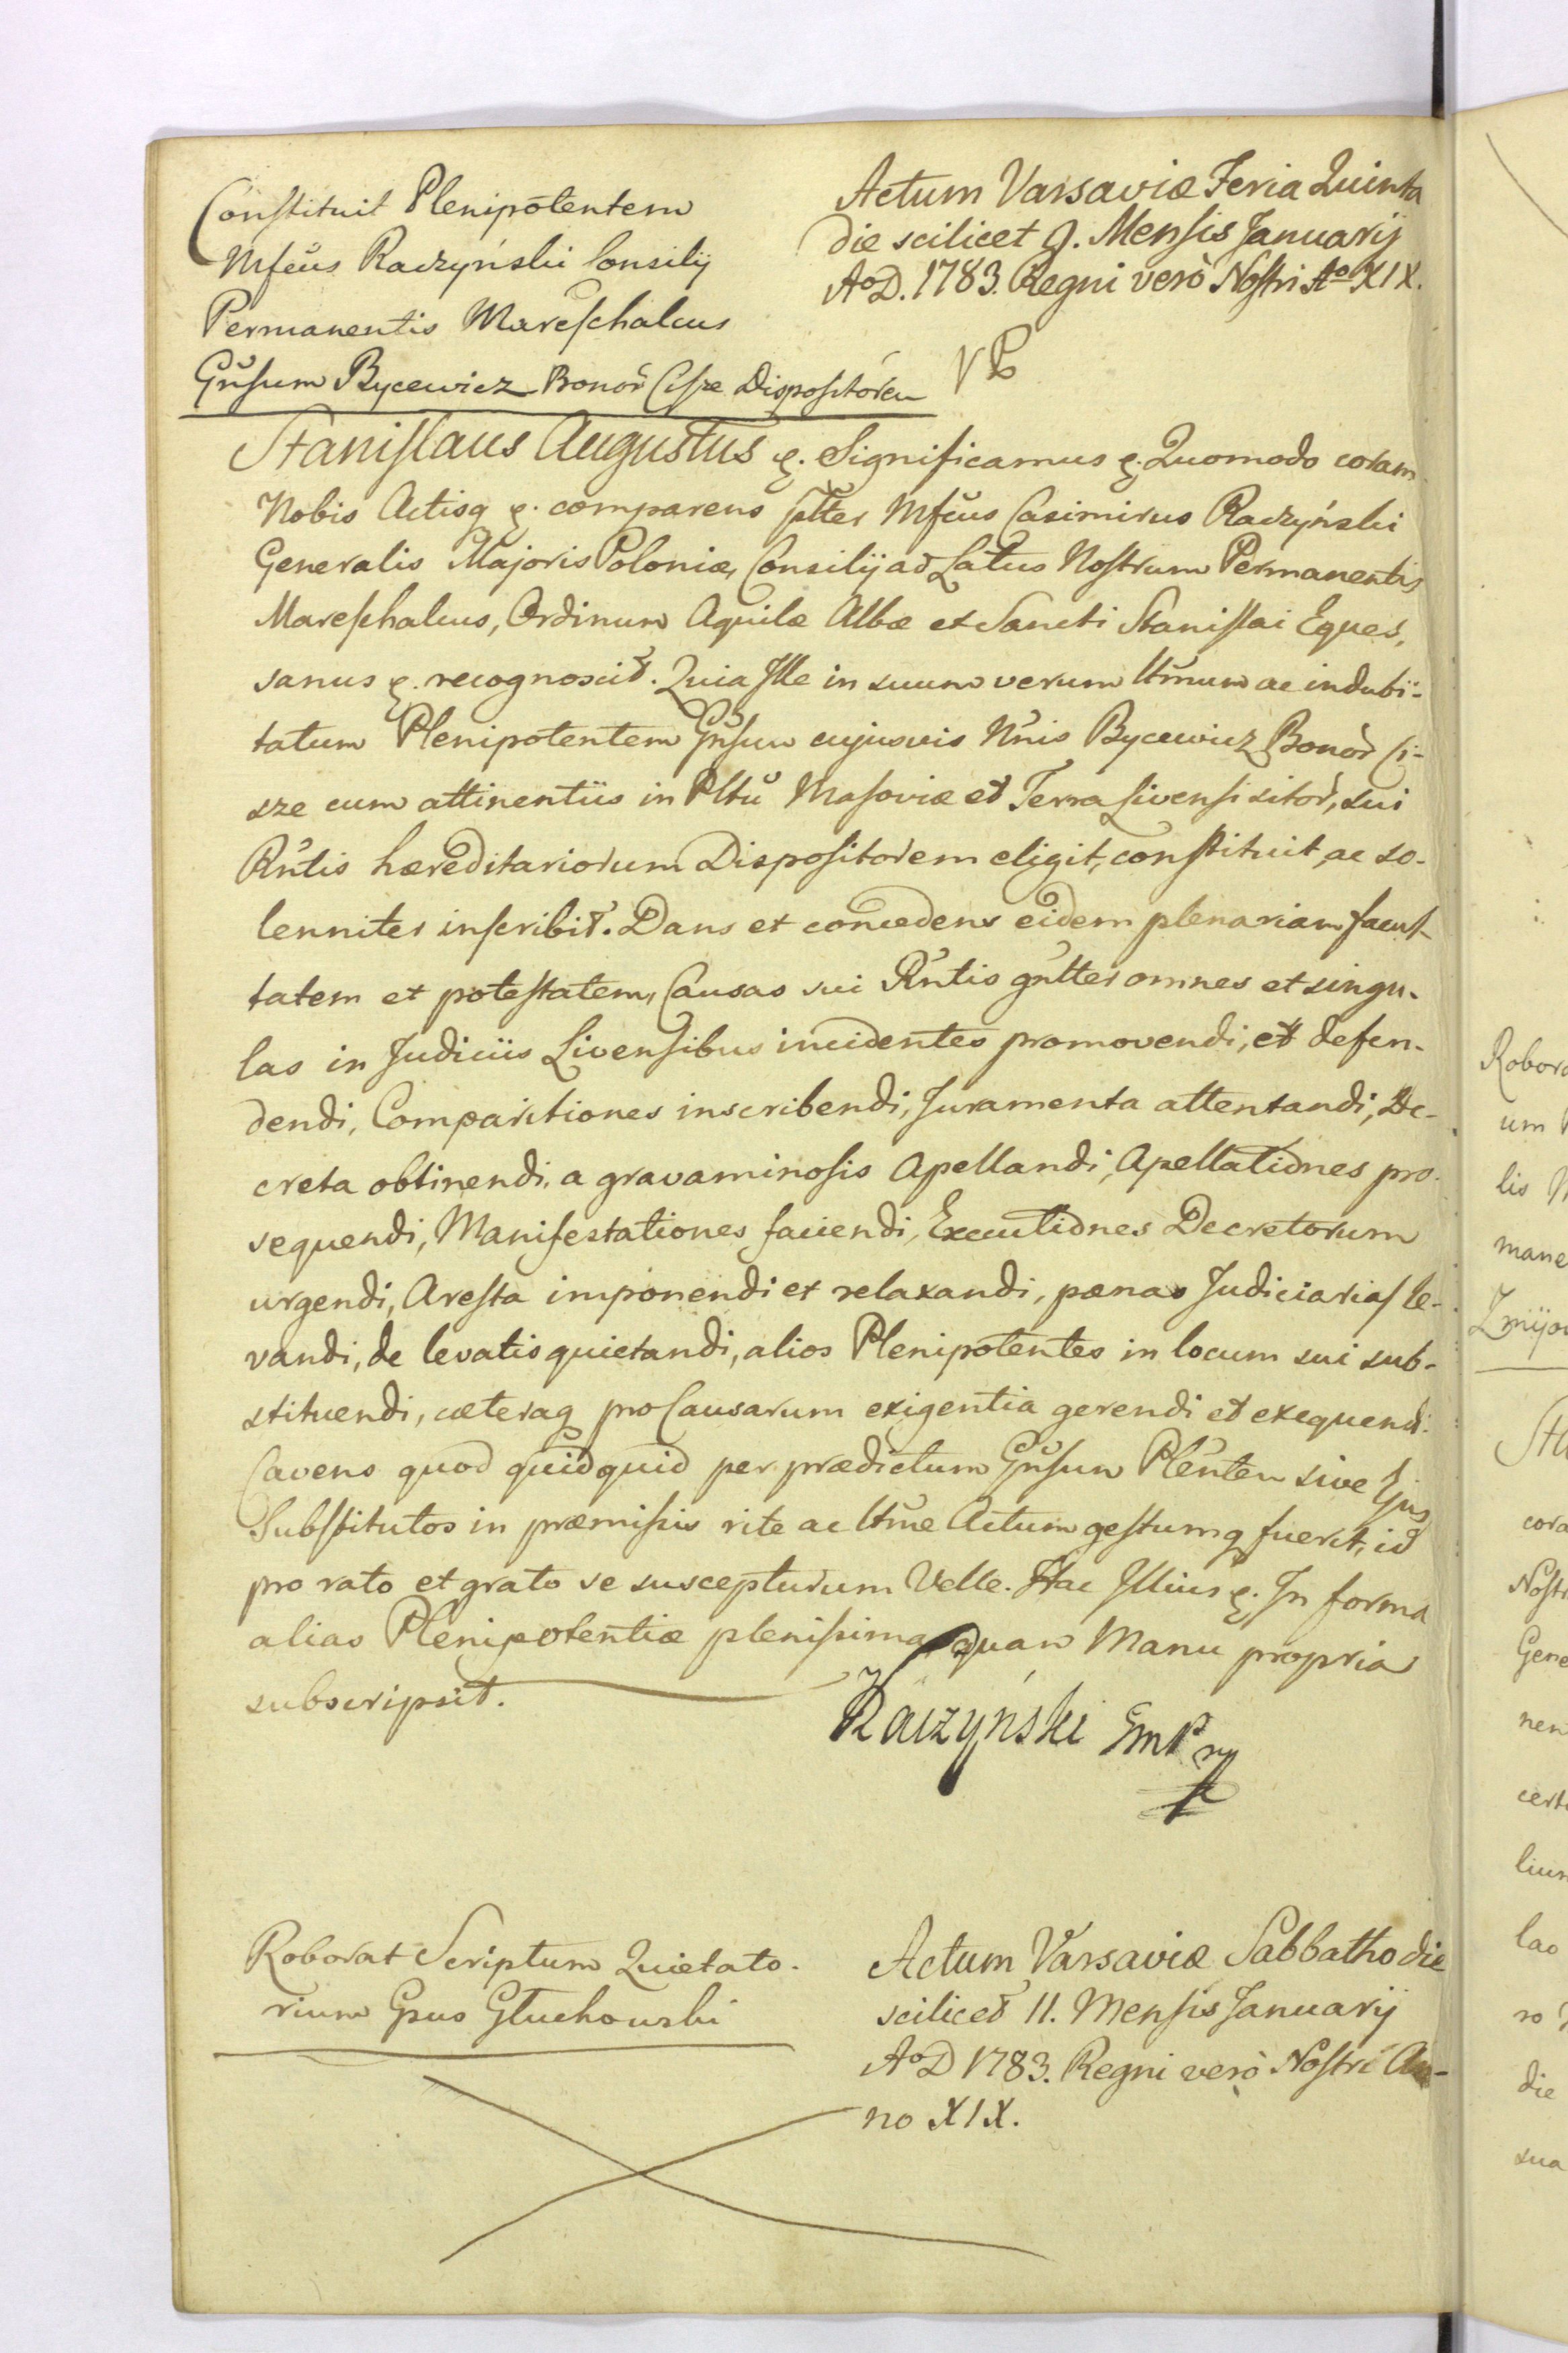 Constituit Plenipotentem
Mfcus Raczyński Consilij
Permanentis Mareschalcus
Gnsum Bycewicz Bonor Cisze Dispositorem
Actum Varsaviæ Feria Quinta
die scilicet 9. Mensis Januarij
AoD. 1783. Regni verò Nostri Ao XIX.
Stanislaus Augustus &. Significamus &. Quomodo coram
Nobis Actisq &. comparens plter Mfcus Casimirus Raczyński
Generalis Majoris Poloniæ, Consilij ad Latus Nostrum Permanentis
Mareschalcus, Ordinum Aquilæ Albæ et Sancti Stanislai Eques,
sanus &. recognoscit. Quia Ille in suum verum ltmum ac indubi-
tatum Plenipotentem Gnsum cujusvis Nnis Bycewicz Bonor Ci-
sze cum attinentiis in Pltu Masoviæ et Terra Livensi sitor, sui
Rntis hæreditariorum Dispositorem eligit, constituit, ac so-
lenniter inscribit. Dans et concedens eidem plenariam facul-
tatem et potestatem, Causas sui Rntis gnlter omnes et singu-
las in Judiciis Livensibus incidentes promovendi, et defen-
dendi, Comparitiones inscribendi, Juramenta attentandi, De-
creta obtinendi, a gravaminosis Apellandi, Apellationes pro-
sequendi, Manifestationes faciendi, Executiones Decretorum
urgendi, Aresta imponendi et relaxandi, pænas Judiciarias le-
vandi, de levatis quietandi, alios Plenipotentes in locum sui sub-
stituendi, cæteraq pro Causarum exigentia gerendi et exequendi.
Cavens quod quidquid per prædictum Gnsum Plentem sive Ejus
Substitutos in præmissis rite ac ltme Actum gestumq fuerit, id
pro rato et grato se suscepturum velle. Hac Illius &. In forma
alias Plenipotentiæ plenissima, quam Manu propria
subscripsit.
Raczyński GmP
Roborat Scriptum Quietato-
rium Gsus Głuchowski
Actum Varsaviæ Sabbatho die
scilicet 11. Mensis Januarij
AoD 1783. Regni verò Nostri An-
no XIX.
Robora
um
lis
mane
Zmijow
Sta
cora
Nostr
Gene
nen
certi
lium
lao
ro
die
sua